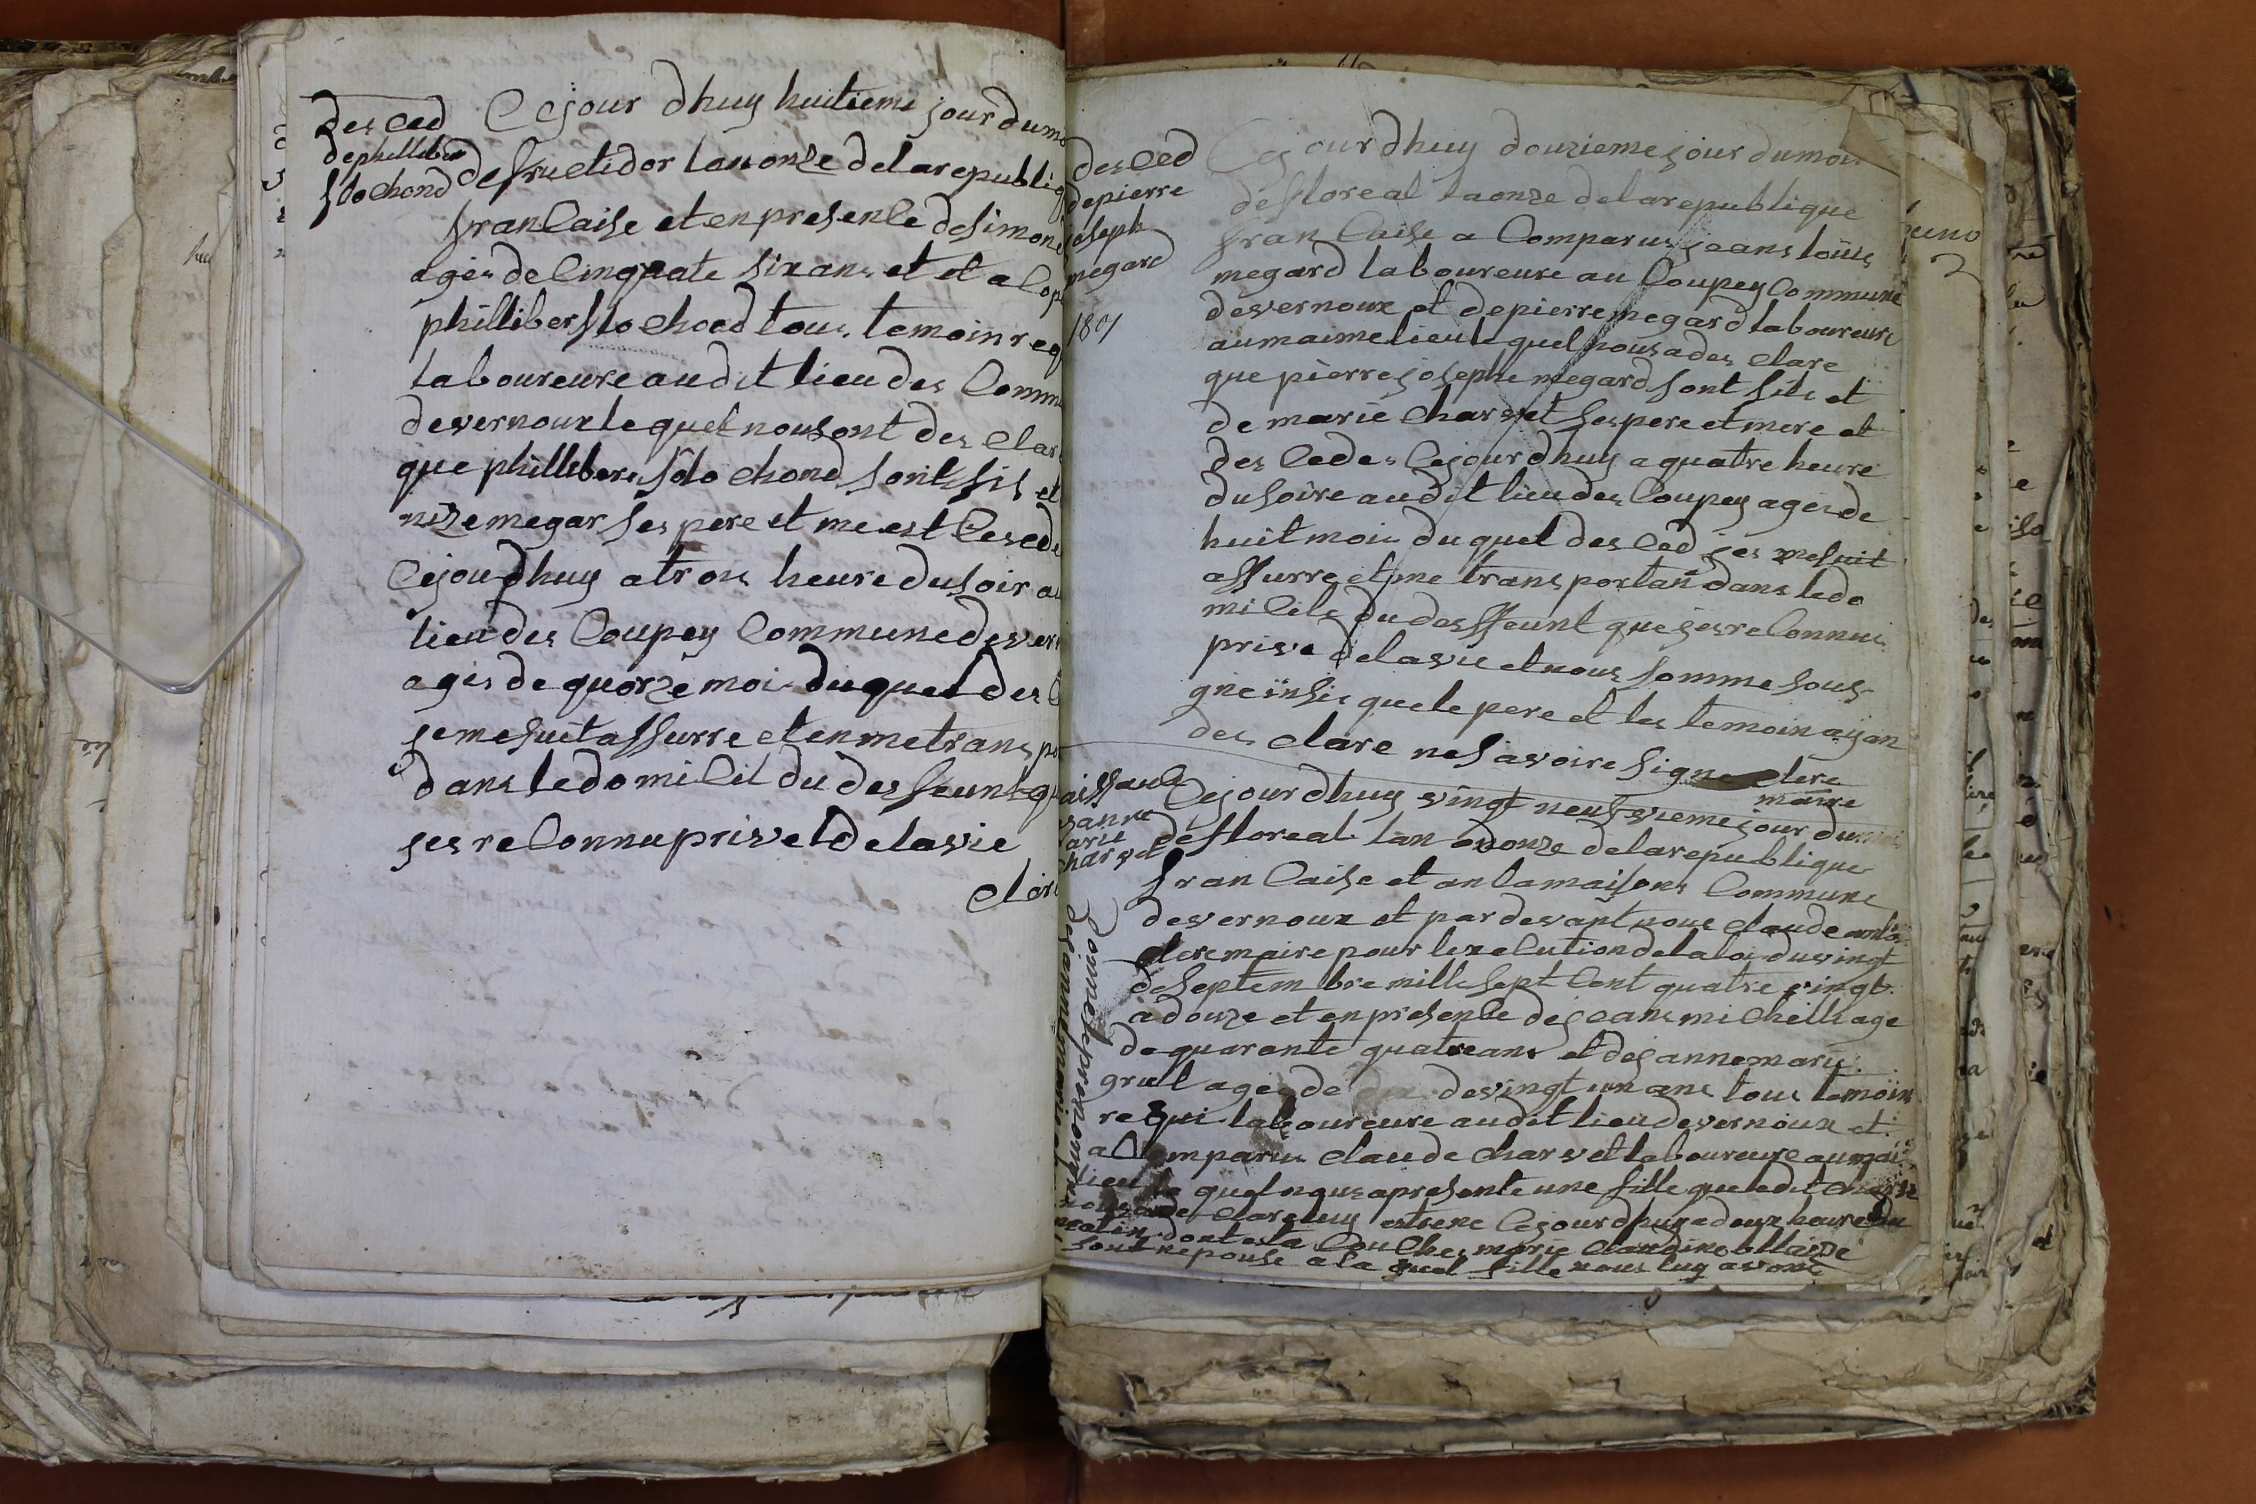 des ced
de philliber
flochond
Cejour dhuy huitieme jour du mo
de fructidor lan onze de la republiq
francaise et en presence de simon
ages de cinquate six ans et et a
phillibers flo chod tous temoin req
laboureure au dit lieu des Comm
de vernoux le quel nous ont des clar
que philliberes flo chond sont fils et
nize megar ses pere et me est
Cejoudhuy a trois heure du soir au
lieu des Coupey Commune de vern
ages de quorze moi du quel des C
je me suit assurre et en me trans po
dans le domi cil du des feunt qu
jes re Connu privet de la vie
clerc
des Ced
de pierre
joseph
megard
1801
Cejour dhuy douzieme jour du moi
de floreal la onze de la republique
francaise a Comparus jeans louis
megard laboureure au Coupey Commune
de vernoux et de pierre megard laboureure
au maime lieu le quel nous a des clare
que pierre josephe megard sont fils et
de marie Charvet ses pere et mere et
des Cedes Cejour dhuy a quatre heure
du soire au dit lieu des Coupey ages de
huit moi du quel des Ced jes me suit
assurre et me trans portan dans le do
mi Cile du desffeunt que jes re Connus
prive de la vie et nous somme sous
gne insis que le pere et les temoin ayan
des clare ne savoire signe clerc
maire
naissance
janne
marie
charvet
Cejour dhuy vingt neufvieme jour du
de floreal lan onze de la republique
francaise et an la maisons Commune
de vernoux et par devant nous claude
clerc maire pour lexe Cution de la loi du vingt
de septem bre mille sept Cent quatre vingt
a douze et en presence de jeans mi chelle age
de quarente quatre ans et de janne marie
grull ages de de vingt un ans tous temoin
re qui laboureure au dit lieu de vernoux et
a Comparus claude charvet laboureure au mai
lieu le quel nous a presente une fille que le dit
des clare luy estrene Cejour dhuy a deux heure du
matin dont est a Couches marie claudine
sont nepouse a la quel fille nous luy avons